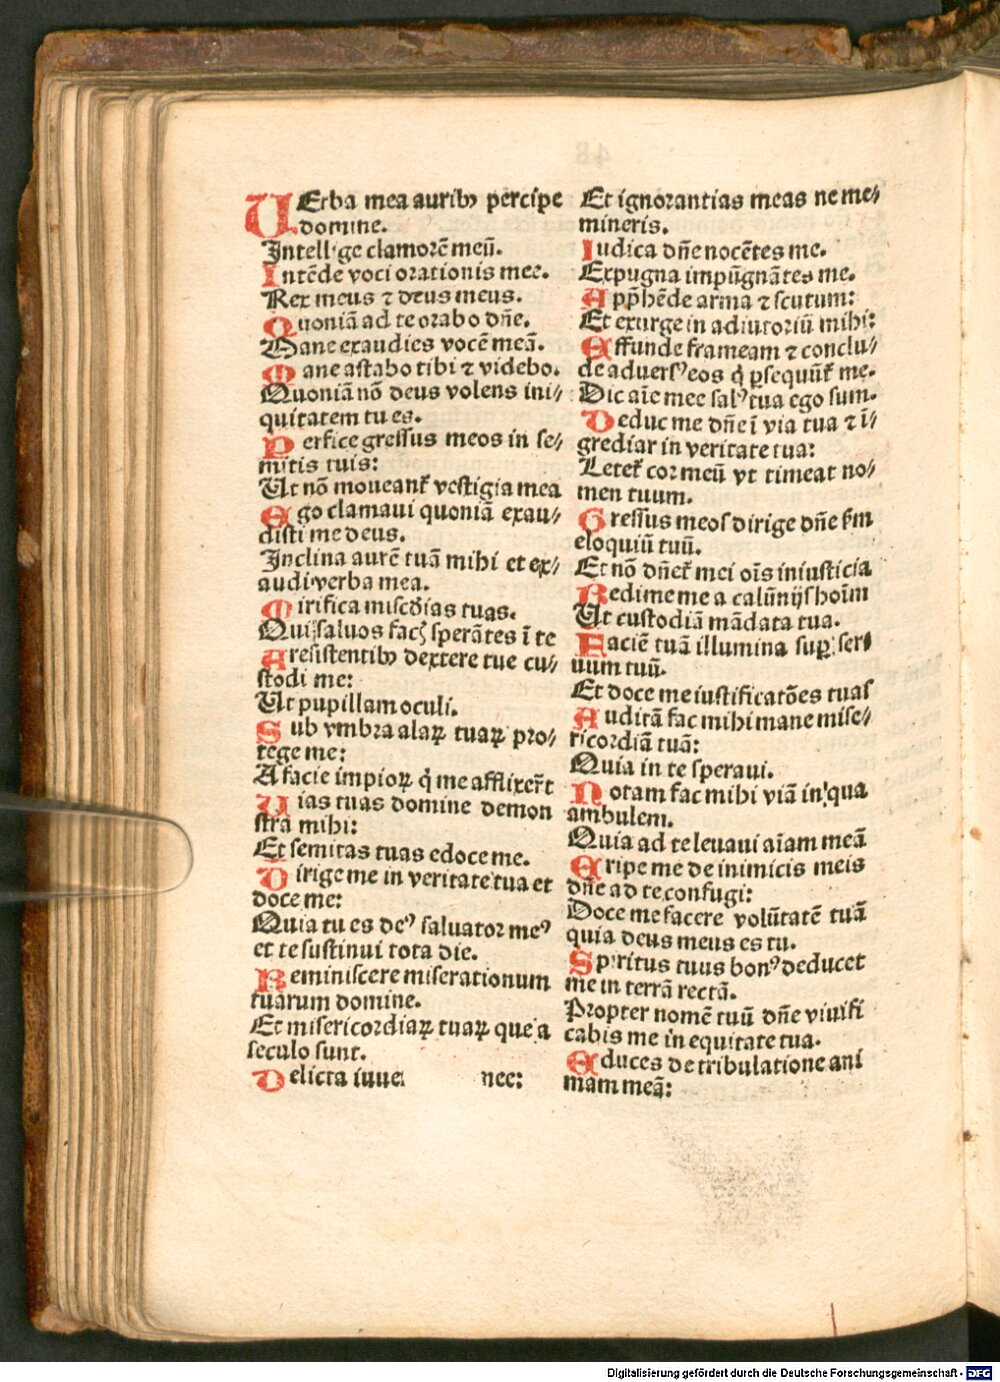 UErba mea auribꝫ percipe
domine.
Intellige clamorē meū.
Intēde voci orationis mee.
Rex meus ⁊ deus meus.
Quoniā ad te orabo dn̄e.
Mane exaudies vocē meā.
Mane astabo tibi ⁊ videbo.
Quoniā nō deus volens ini⸗
quitatem tu es.
Perfice gressus meos in se⸗
mitis tuis:
Ut nō moueant᷑ vestigia mea
Ego clamaui quoniā exau⸗
disti me deus.
Inclina aurē tuā mihi et ex⸗
audi verba mea.
Mirifica misc̄dias tuas.
Qui saluos facꝭ sperātes ī te
A resistentibꝫ dextere tue cu⸗
stodi me:
Ut pupillam oculi.
Sub vmbra alaꝝ tuaꝝ pro⸗
tege me:
A facie impioꝝ q̇ me afflixer̄t
Uias tuas domine demon
stra mihi:
Et semitas tuas edoce me.
Dirige me in veritate tua et
doce me:
Quia tu es deꝰ saluator meꝰ
et te sustinui tota die.
Reminiscere miserationum
tuarum domine.
Et misericordiaꝝ tuaꝝ que a
seculo sunt.
Delicta iuue nee:
Et ignorantias meas ne me⸗
mineris.
Iudica dn̄e nocētes me.
Expugna impūgnātes me.
App̄hēde arma ⁊ scutum:
Et exurge in adiutoriū mihi:
Effunde frameam ⁊ conclu⸗
de aduersꝰ eos q̇ ꝑsequūt᷑ me.
Dic aīe mee salꝰ tua ego sum.
Deduc me dn̄e ī via tua ⁊ ī⸗
grediar in veritate tua:
Letet᷑ cor meū vt timeat no⸗
men tuum.
Gressus meos dirige dn̄e ẜm
eloquiū tuū.
Et nō dn̄et᷑ mei oīs iniusticia
Redime me a calūnijs hoīm
Ut custodiā mādata tua.
Faciē tuā illumina suꝑ ser⸗
uum tuū.
Et doce me iustificatōes tuas
Auditā fac mihi mane mise⸗
ricordiā tuā:
Quia in te speraui.
Notam fac mihi viā in qua
ambulem.
Quia ad te leuaui aīam meā
Eripe me de inimicis meis
dn̄e ad te confugi:
Doce me facere volūtatē tuā
quia deus meus es tu.
Spiritus tuus bonꝰ deducet
me in terrā rectā.
Propter nomē tuū dn̄e viuifi
cabis me in equitate tua.
Educes de tribulatione ani
mam meā:
Digitalisierung gefördert durch die Deutsche Forschungsgemeinschaft - DFG